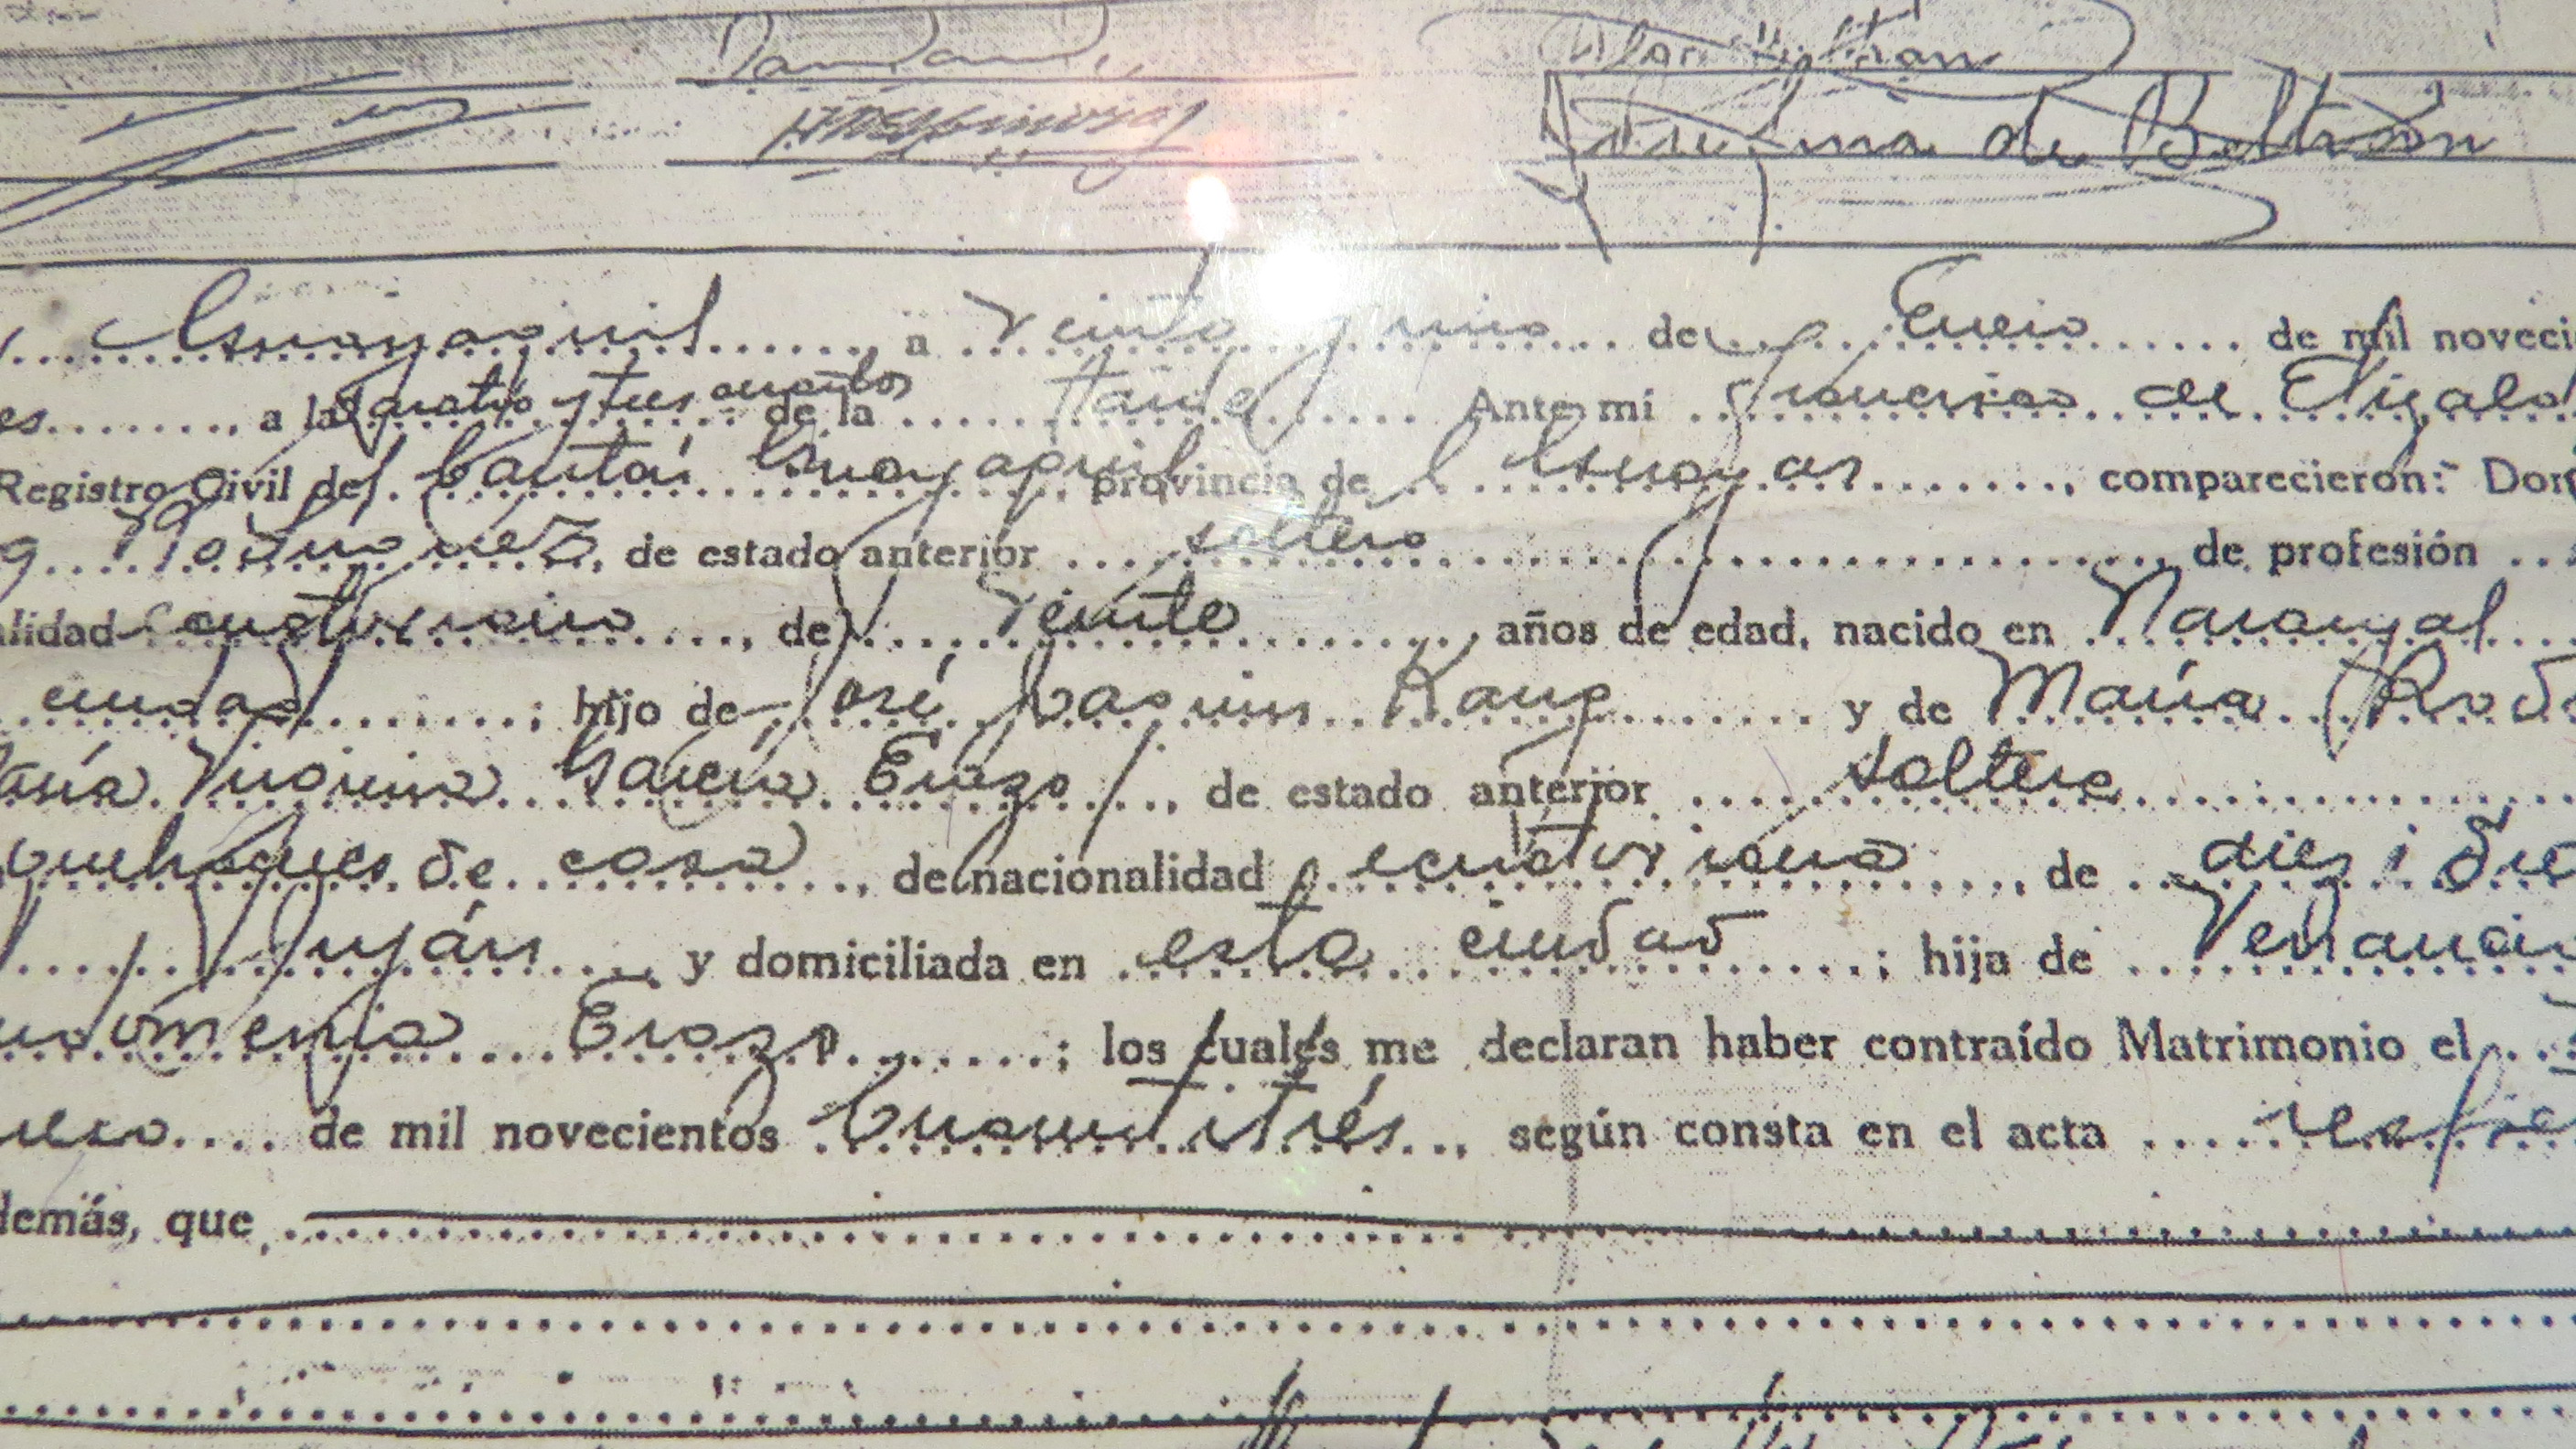 de Beltrán
Guayaquil a veinte y uno de Enero de mil noveci
es, a las cuatro y tres cuartos de la tarde Ante mi Francisco de
Registro Civil del Cantón Guayaquil provincia de l Guayas, comparecieron: Don
g Rodríguez, de estado anterior soltero, de profesión
alidad ecuatoriano, de veinte años de edad, nacido en Naranjal
ciudad; hijo de José Joaquin Kang y de María Rod
aría Virginia García Erazo, de estado anterior soltera
quehaceres de casa, de nacionalidad ecuatoriana, de diez i
Juján y domiciliada en esta ciudad; hija de Venancio
Erazo; los cuales me declaran haber contraído Matrimonio el
nero de mil novecientos cuarentitrés, según consta en el acta
demás, que